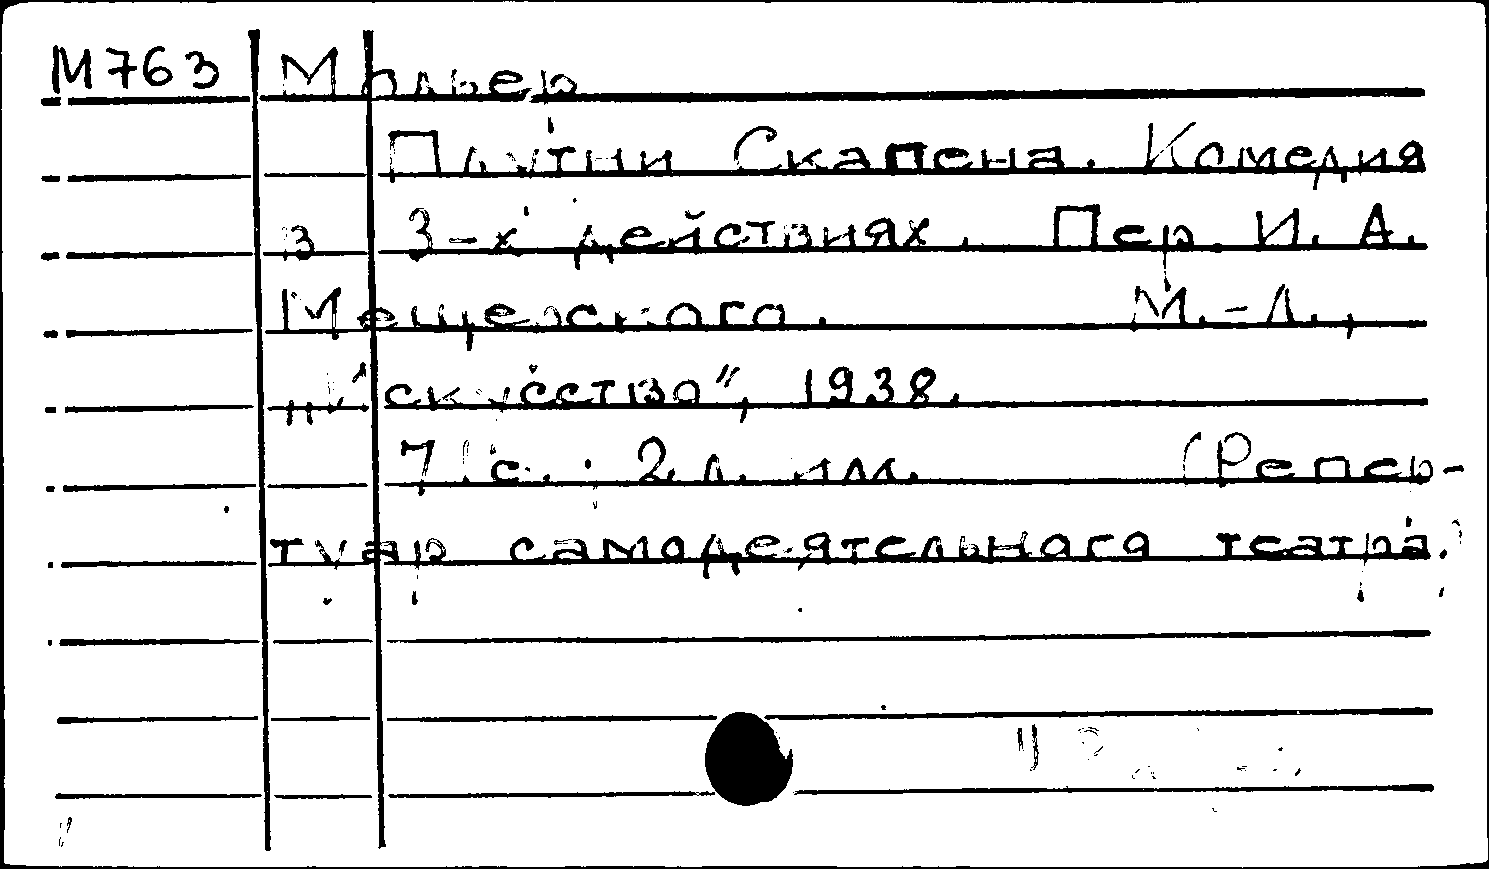 М763 Мольер
Плутни Скапена. Комедия
в 3-х действиях. Пер. И. А.
Мещерского. М.-Л.,
"Искусство", 1938.
71 с.; 2 л. илл. (Репер-
туар самодеятельного театра.)